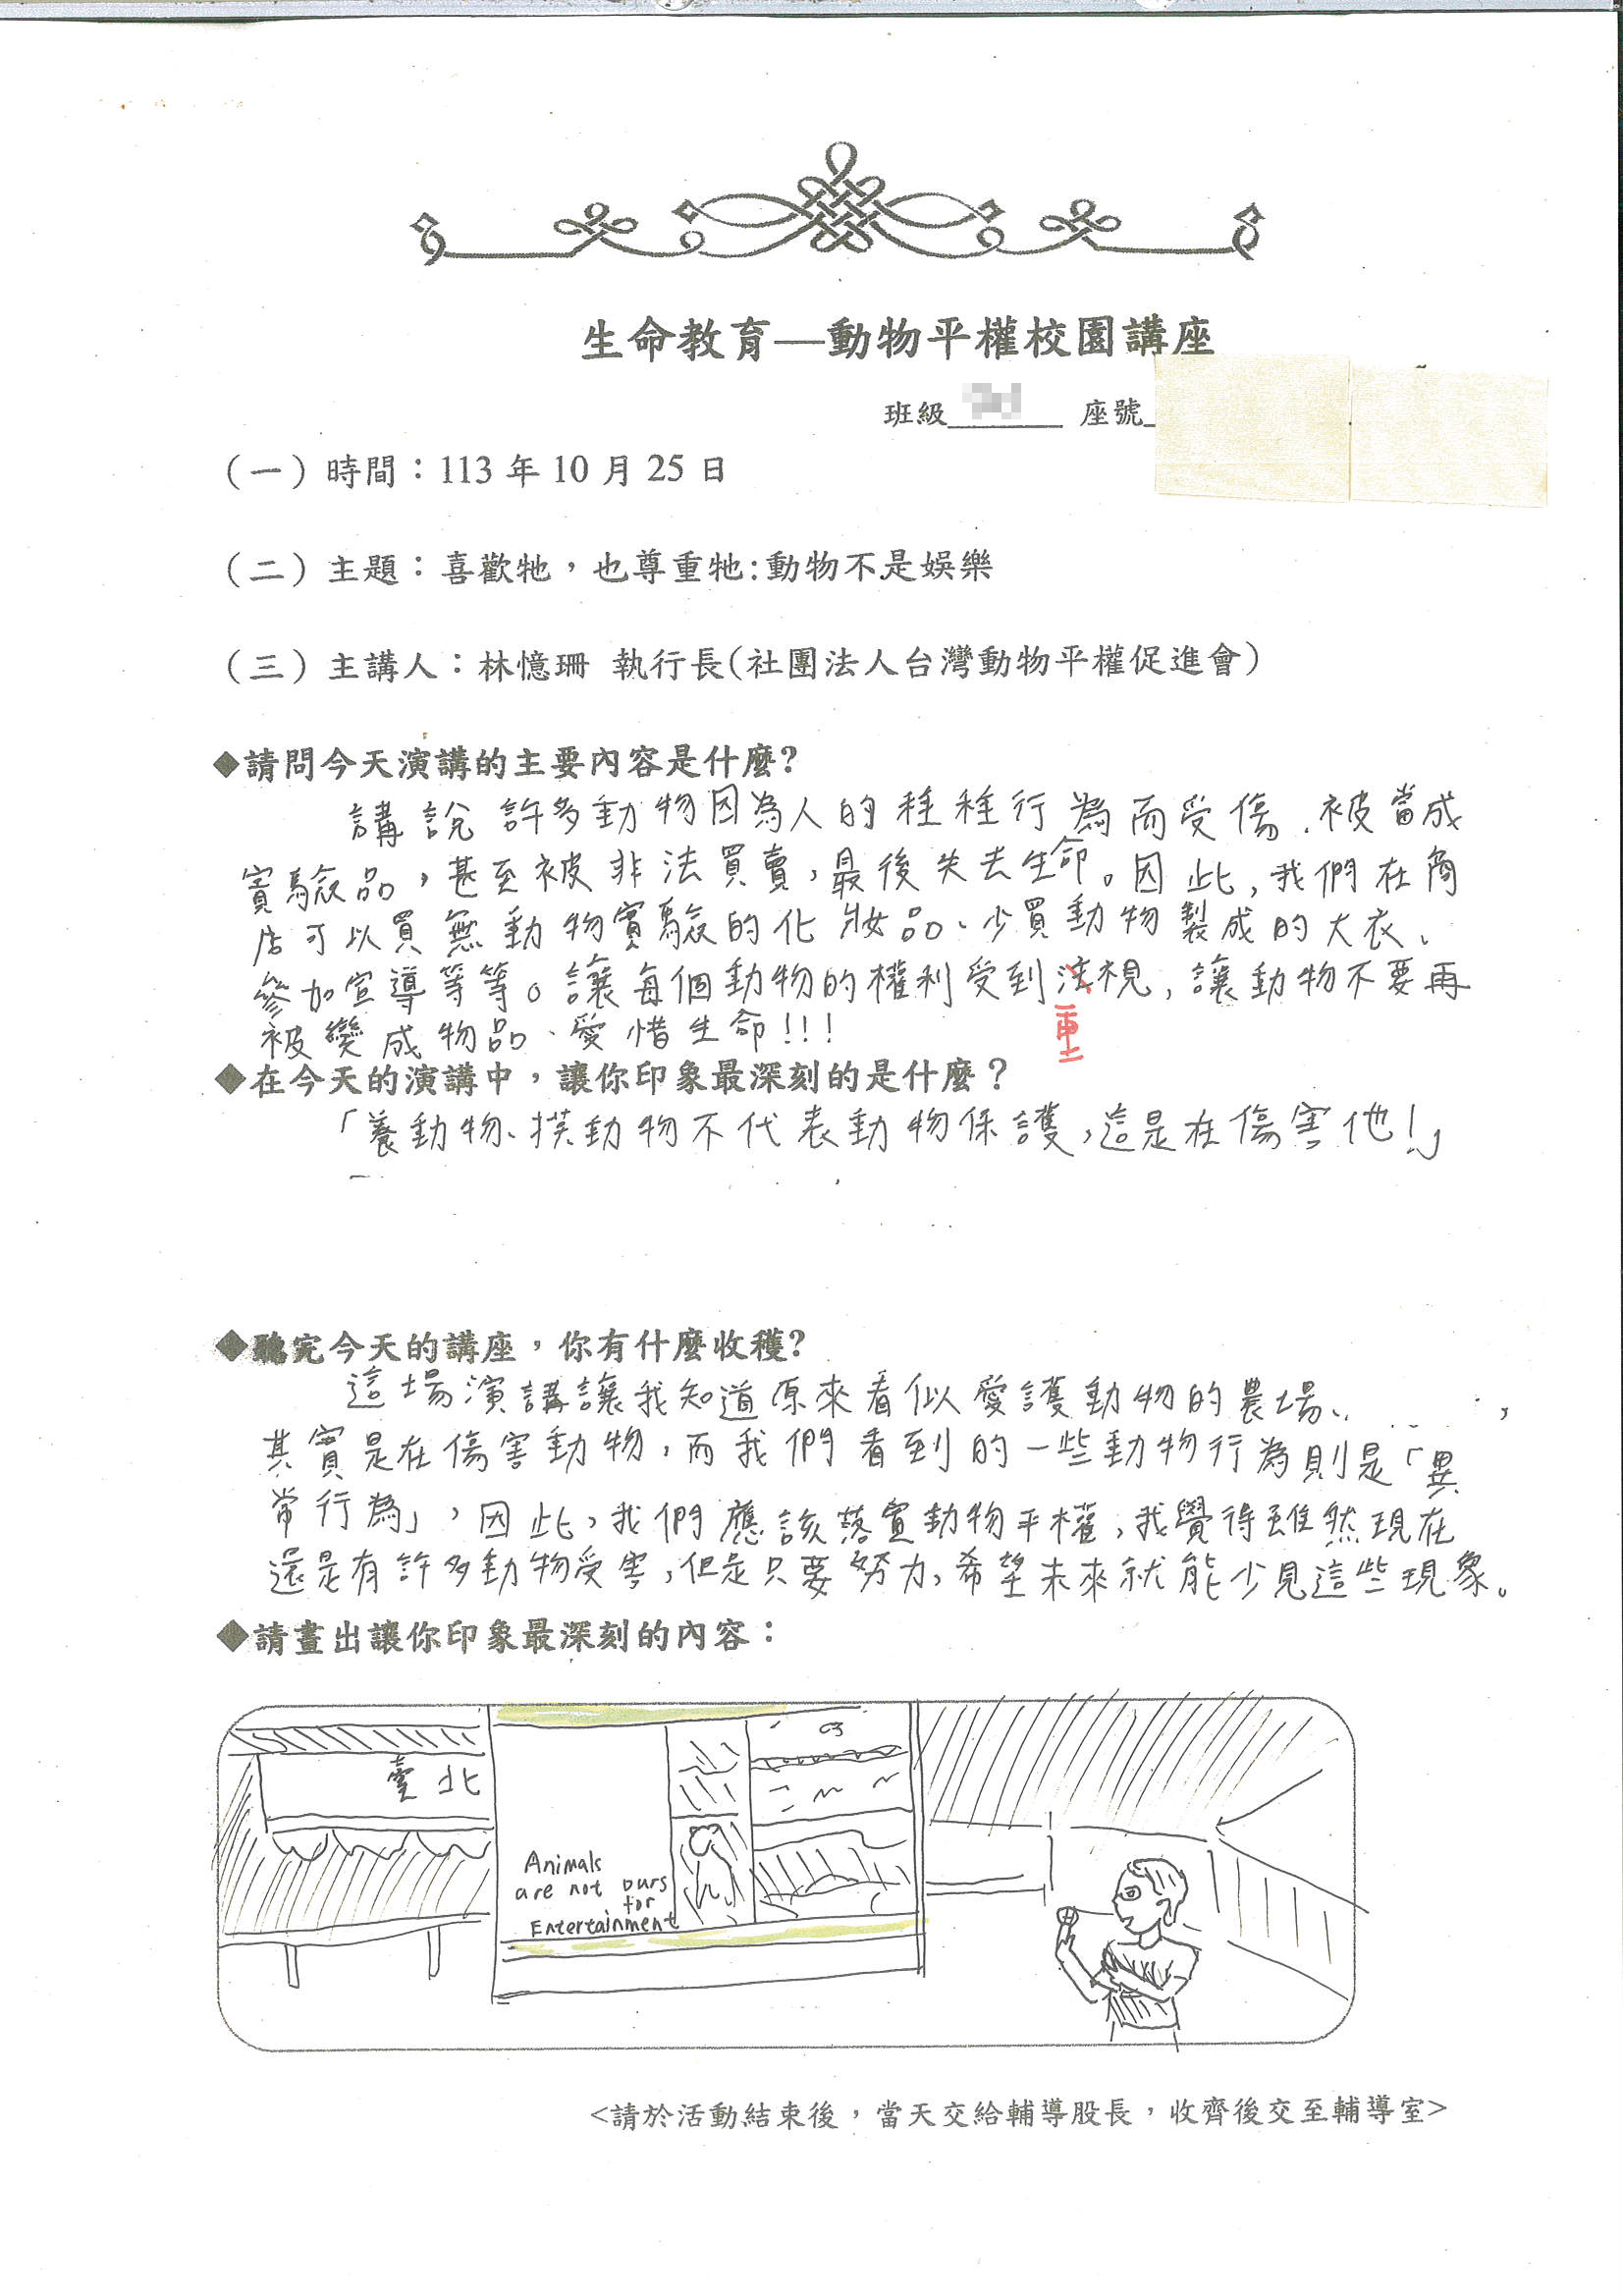 生命教育—動物平權校園講座
班級 座號
(一)時間：113 年 10 月 25 日
(二)主題：喜歡牠，也尊重牠:動物不是娛樂
(三)主講人：林憶珊 執行長(社團法人台灣動物平權促進會)
◆請問今天演講的主要內容是什麼?
講說許多動物因為人的種種行為而受傷、被當成
實驗品，甚至被非法買賣，最後失去生命。因此，我們在商
店可以買無動物實驗的化妝品、少買動物製成的大衣、
參加宣導等等。讓每個動物的權利受到注視，讓動物不要再
重
被變成物品、愛惜生命!!!
◆在今天的演講中，讓你印象最深刻的是什麼？
「養動物、摸動物不代表動物保護，這是在傷害他!」
◆聽完今天的講座，你有什麼收穫?
這場演講讓我知道原來看似愛護動物的農場、，
其實是在傷害動物，而我們看到的一些動物行為則是「異
常行為」，因此，我們應該落實動物平權，我覺得雖然現在
還是有許多動物受害，但是只要努力，希望未來就能少見這些現象。
◆請畫出讓你印象最深刻的內容：
臺北
Animals
are not ours
for
Entertainment
<請於活動結束後，當天交給輔導股長，收齊後交至輔導室>